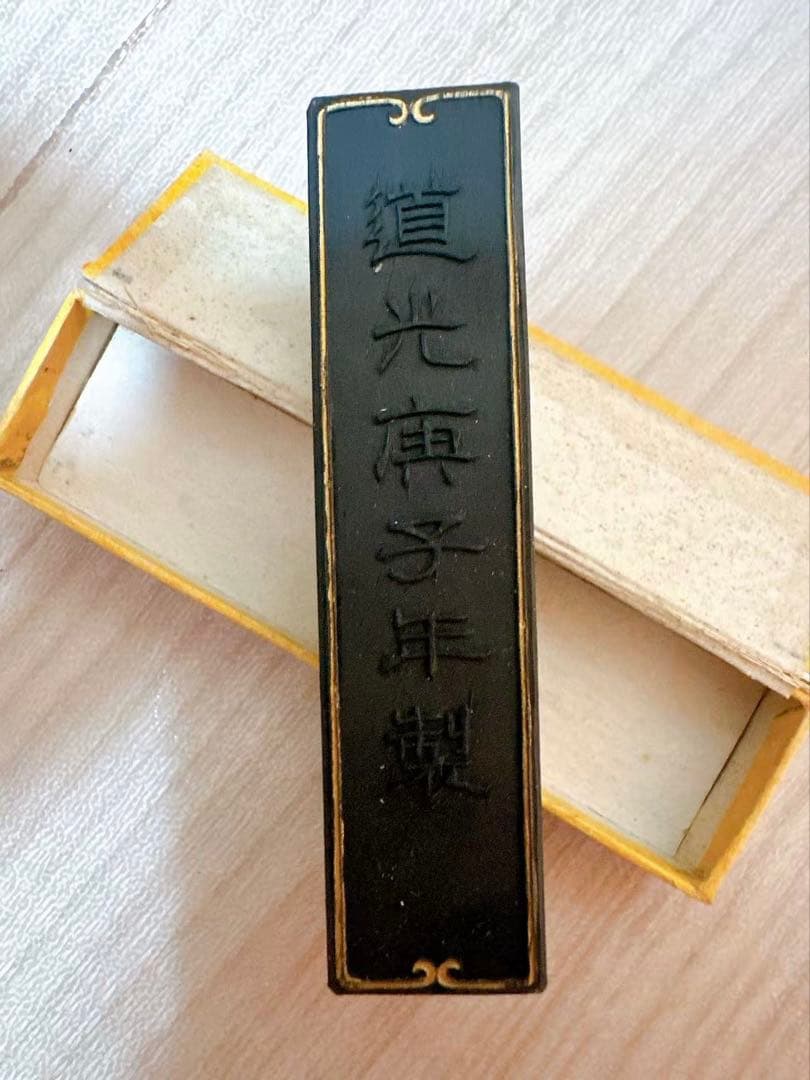 道光庚子年製